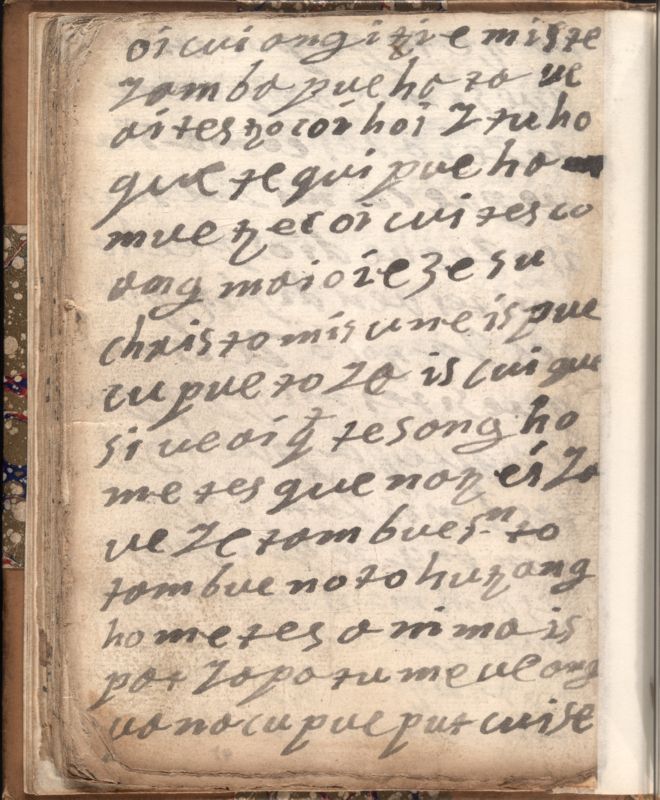 oi cui ang itzi e miste
zamba pue ho ta ue
oi tes tzo coi hoi z tu ho
que te qui pue ho
mue tze coi cui tes co
ang maio ie ze su
christo mis une is pue
cu pue to za is cui que
si ue oi q̄ te song ho
me tes que na tz es za
ue ze tam bues n to
tam bue no to hu tzang
ho me tes anima is
pat zapa tu me ue ang
ua na cu pue put cui se